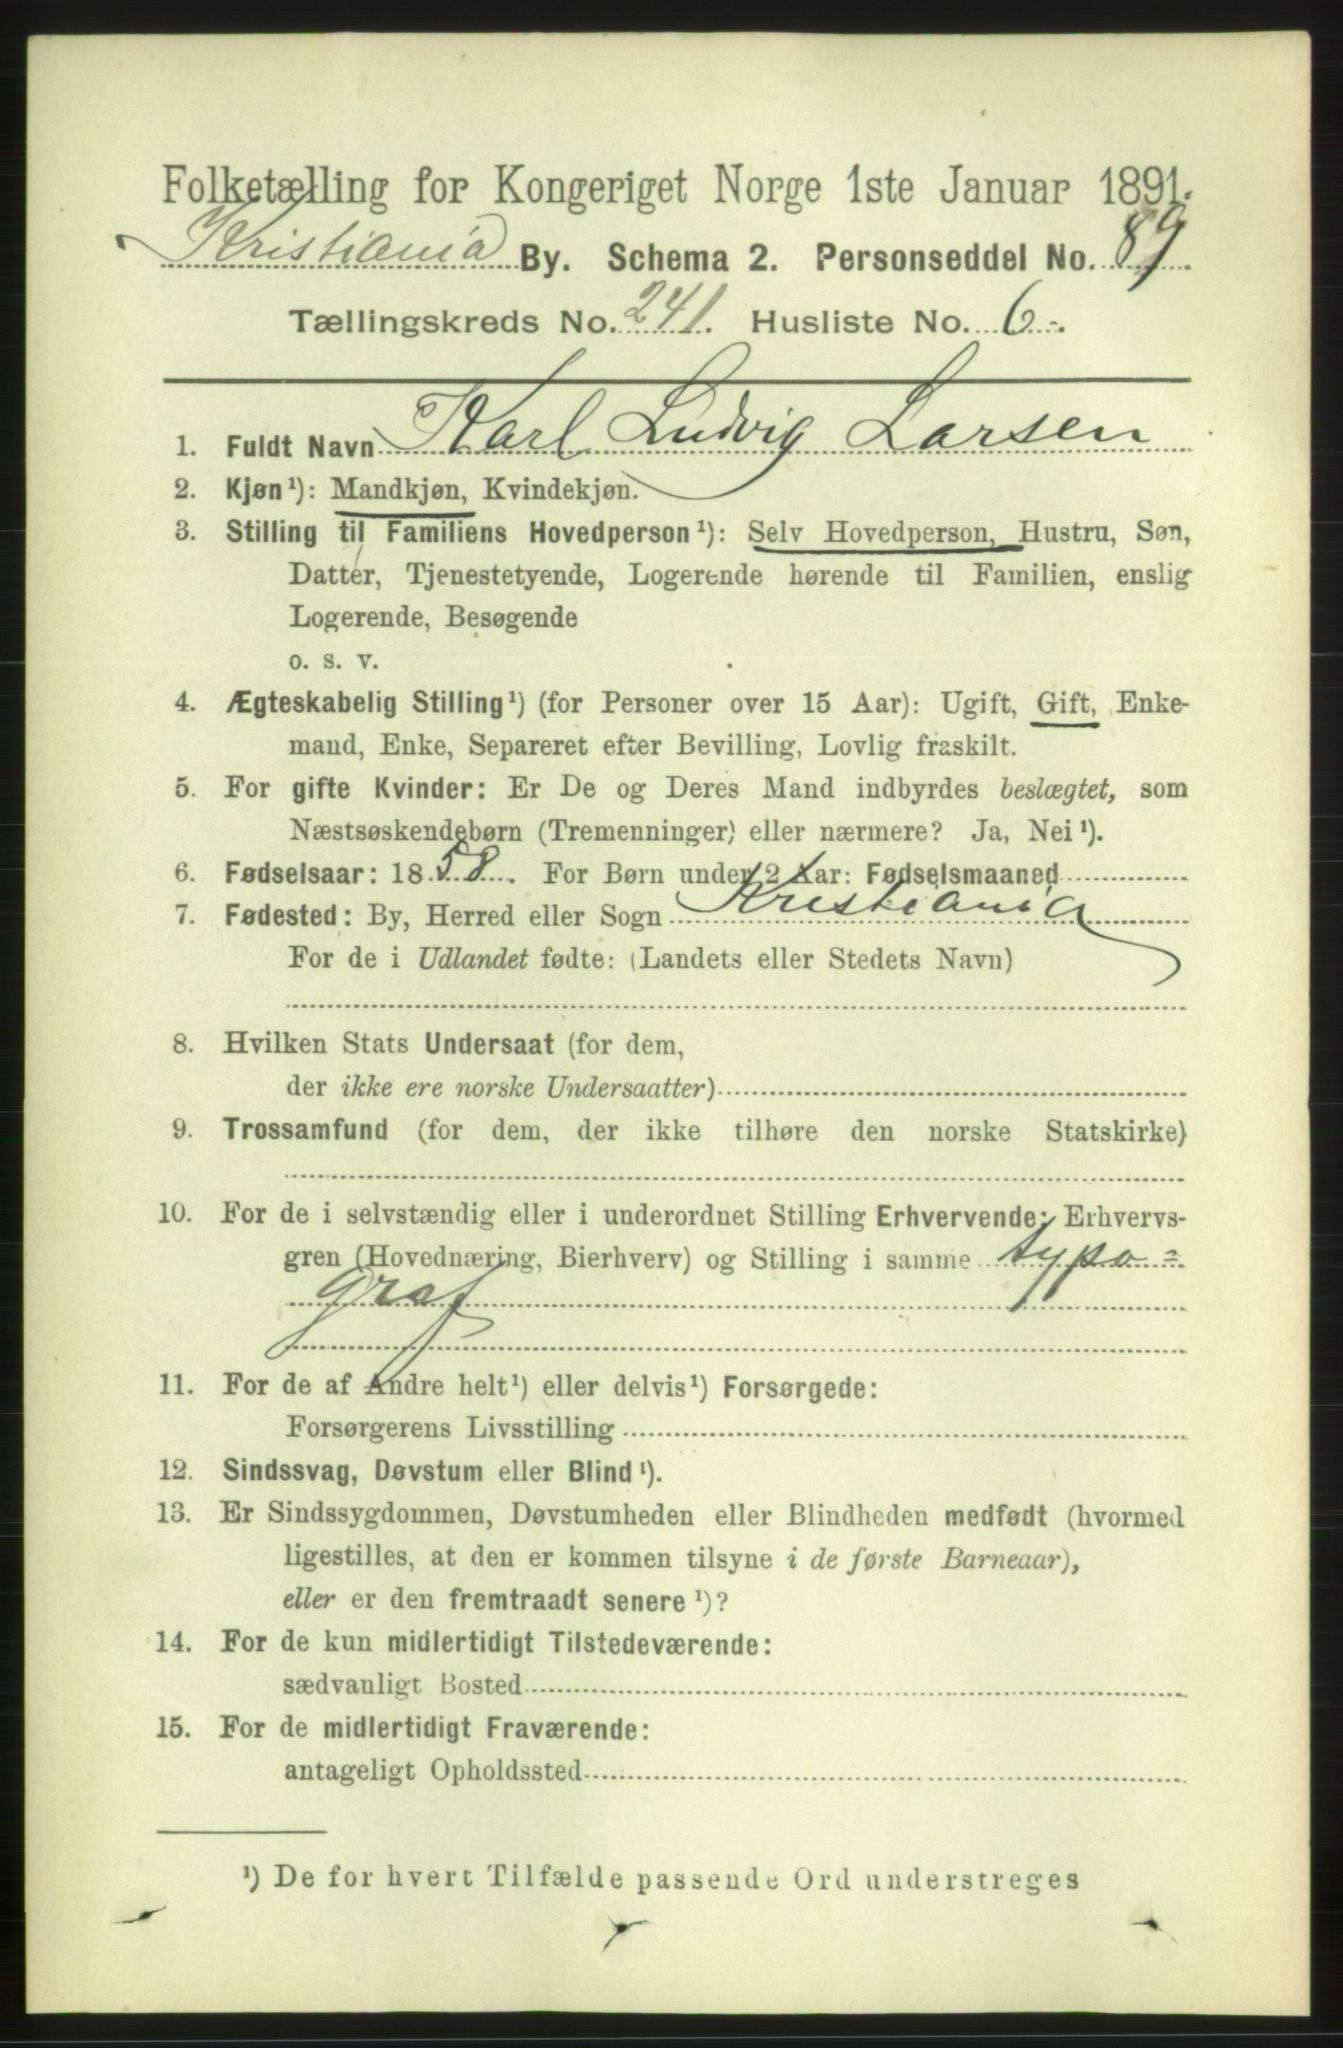 Folketælling for Kongeriget Norge 1ste Januar 1891.
Kristiania By. Schema 2. Personseddel No. 89.
Tællingskreds No. 241. Husliste No. 6.
1. Fuldt Navn Karl Ludvig Larsen
2. Kjøn¹): Mandkjøn, Kvindekjøn.
3. Stilling til Familiens Hovedperson¹): Selv Hovedperson, Hustru, Søn,
Datter, Tjenestetyende, Logerende hørende til Familien, enslig
Logerende, Besøgende
o. s. v.
4. Ægteskabelig Stilling¹) (for Personer over 15 Aar): Ugift, Gift, Enke-
mand, Enke, Separeret efter Bevilling, Lovlig fraskilt.
5. For gifte Kvinder: Er De og Deres Mand indbyrdes beslægtet, som
Næstsøskendebørn (Tremenninger) eller nærmere? Ja, Nei¹).
6. Fødselsaar: 1858. For Børn under 2 Aar: Fødselsmaaned
7. Fødested: By, Herred eller Sogn Kristiania
For de i Udlandet fødte: (Landets eller Stedets Navn)
8. Hvilken Stats Undersaat (for dem,
der ikke ere norske Undersaatter)
9. Trossamfund (for dem, der ikke tilhøre den norske Statskirke)
10. For de i selvstændig eller i underordnet Stilling Erhvervende: Erhvervs-
gren (Hovednæring, Bierhverv) og Stilling i samme typo=
graf
11. For de af Andre helt¹) eller delvis¹) Forsørgede:
Forsørgerens Livsstilling
12. Sindssvag, Døvstum eller Blind¹).
13. Er Sindssygdommen, Døvstumheden eller Blindheden medfødt (hvormed
ligestilles, at den er kommen tilsyne i de første Barneaar),
eller er den fremtraadt senere¹)?
14. For de kun midlertidigt Tilstedeværende:
sædvanligt Bosted
15. For de midlertidigt Fraværende:
antageligt Opholdssted
¹) De for hvert Tilfælde passende Ord understreges